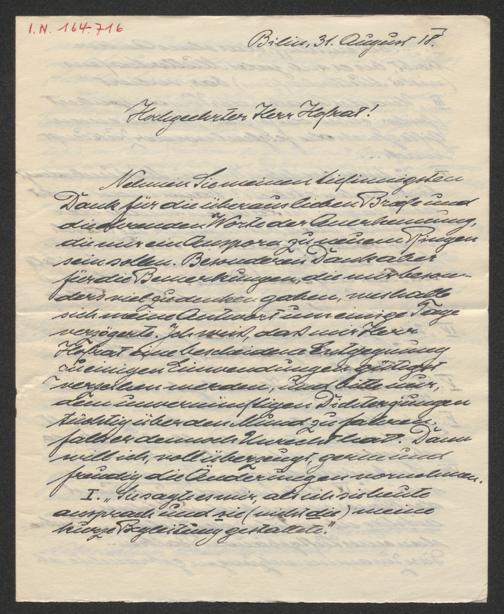 I.N. 164.716
Bilin, 31. August 18.
Hochgeehrter Herr Hofrat!
Nehmen Sie meinen tiefinnigsten
Dank für die überaus lieben Briefe und
die ehrenden Worte der Anerkennung,
die mir ein Ansporn zu neuem Ringen
sein sollen. Besonderen Dank aber
für die Bemerkungen, die mir beson-
ders viel zu denken gaben, weshalb
sich meine Antwort um einige Tage
verzögerte. Ich weiß, daß mir Herr
Hofrat eine bescheidene Entgegnung
zu einigen Einwendungen gütigst
verzeihen werden, und bitte nur,
dem unvernünftigen Dichterjungen
tüchtig über den Mund zu fahren,
falls er dennoch Unrecht hat. Dann
will ich, voll überzeugt, gerne und
freudig die Änderungen vornehmen.
I. "Sie sagte mir, als ich sie heute
ansprach und sie (nicht die) meine
kurze Begleitung gestattete."